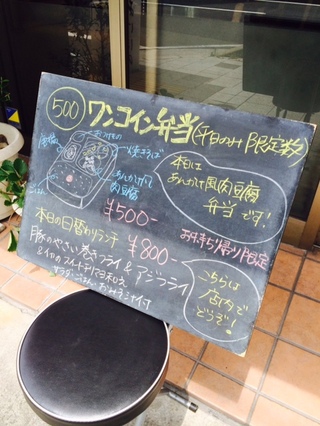 500 ワンコイン弁当(平日のみ 限定数)
おつけもの
焼きそば
ごはん
あんかけ
肉豆腐
本日は
あんかけ風肉豆腐
弁当です!
¥500-
お持ち帰り限定
本日の日替わりランチ ¥800-
豚のやさい巻きフライ & アジフライ
サラダ・ごはん・おみそ汁付
こちらは
店内で
どうぞ!